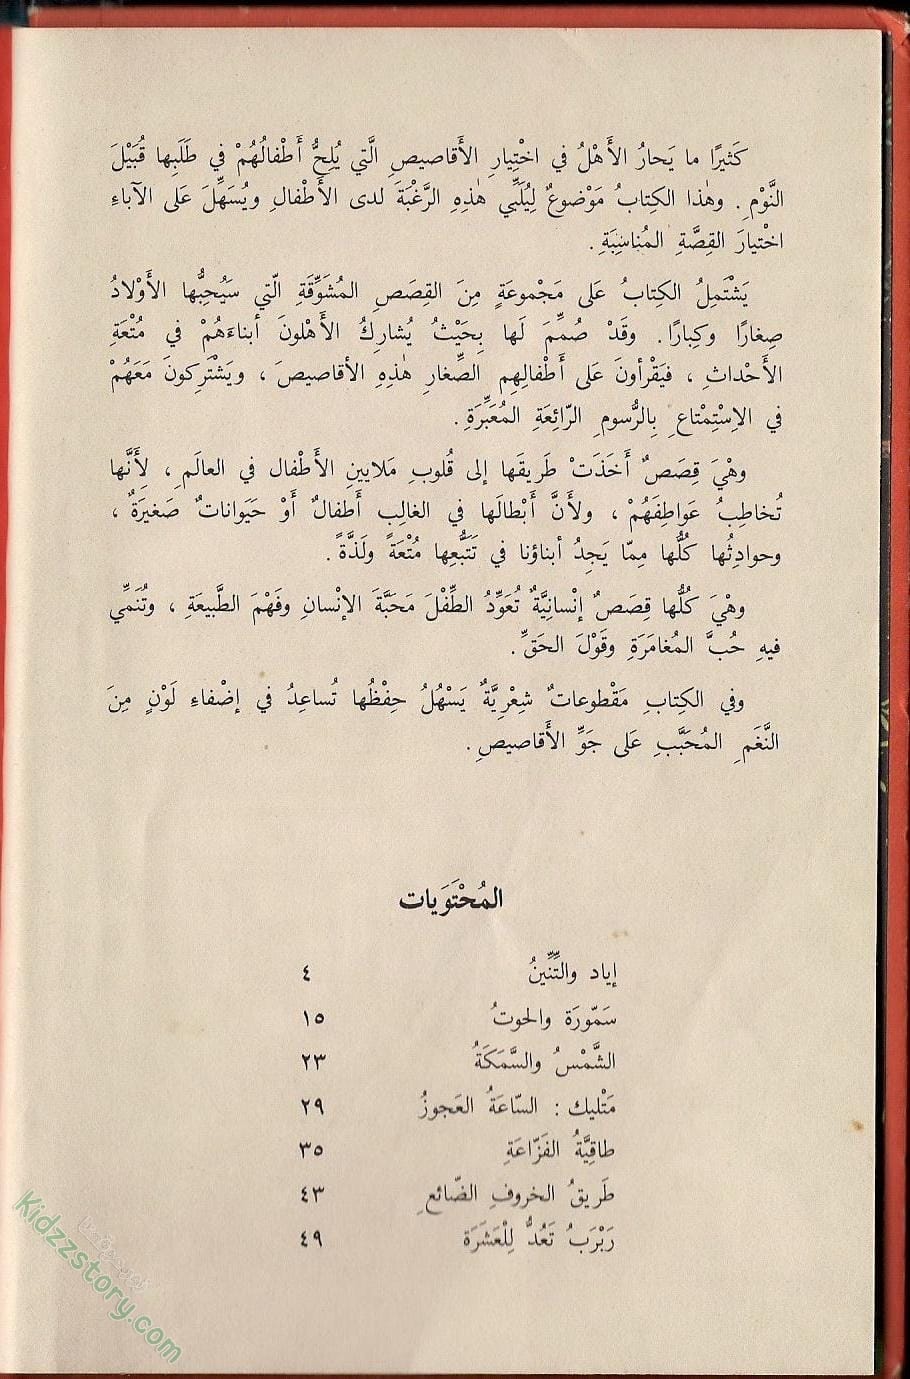 كَثيرًا ما يَحارُ الأَهْلُ في اخْتِيارِ الأَقاصيصِ الَّتي يُلِحُّ أَطْفالُهُمْ في طَلَبِها قُبَيْلَ
النَّوْمِ. وهٰذا الكِتابُ مَوْضوعٌ لِيُلَبِّي هٰذِهِ الرَّغْبَةَ لدى الأَطْفالِ ويُسَهِّلَ عَلى الآباءِ
اخْتِيارَ القِصَّةِ المُناسِبَةِ.
يَشْتَمِلُ الكِتابُ عَلى مَجْموعَةٍ مِنَ القِصَصِ المُشَوِّقَةِ الّتي سَيُحِبُّها الأَوْلادُ
صِغارًا وكِبارًا. وقَدْ صُمِّمَ لَها بِحَيْثُ يُشارِكُ الأَهْلونَ أبناءَهُمْ في مُتْعَةِ
الأَحْداثِ، فيَقْرأونَ عَلى أَطْفالِهِم الصِّغارِ هٰذِهِ الأقاصيصَ، ويَشْتَرِكونَ مَعَهُمْ
في الاِسْتِمْتاعِ بِالرُّسومِ الرّائِعَةِ المُعَبِّرَةِ.
وهْيَ قِصَصٌ أَخَذَتْ طَريقَها إلى قُلوبِ مَلايينِ الأَطْفال في العالَمِ، لِأَنَّها
تُخاطِبُ عَواطِفَهُمْ، ولأَنَّ أَبْطالَها في الغالِبِ أَطفالٌ أَوْ حَيَواناتٌ صَغيرَةٌ،
وحوادِثُها كُلُّها مِمّا يَجِدُ أبناؤنا في تَتَبُّعِها مُتْعَةً ولَذَّةً.
وهْيَ كُلُّها قِصَصٌ إنْسانِيَّةٌ تُعَوِّدُ الطِّفْلَ مَحَبَّةَ الإنْسانِ وفَهْمَ الطَّبيعَةِ، وتُنَمِّي
فيهِ حُبَّ المُغامَرَةِ وقَوْلَ الحَقِّ.
وفي الكِتابِ مَقْطوعاتٌ شِعْرِيَّةٌ يَسْهُلُ حِفْظُها تُساعِدُ في إضْفاءِ لَوْنٍ مِنَ
النَّغَمِ المُحَبَّبِ عَلى جَوِّ الأَقاصيصِ.
المُحْتَوَيات
إياد والتِّنِّينُ ٤
سَمّورَة والحوتُ ١٥
الشَّمْسُ والسَّمَكَةُ ٢٣
مَتْليك: السّاعَةُ العَجوزُ ٢٩
طاقِيَّةُ الفَزّاعَةِ ٣٥
طَريقُ الخروفِ الضّائعِ ٤٣
رَبْرَبُ تَعُدُّ لِلْعَشَرَة ٤٩
Kidzzstory.com